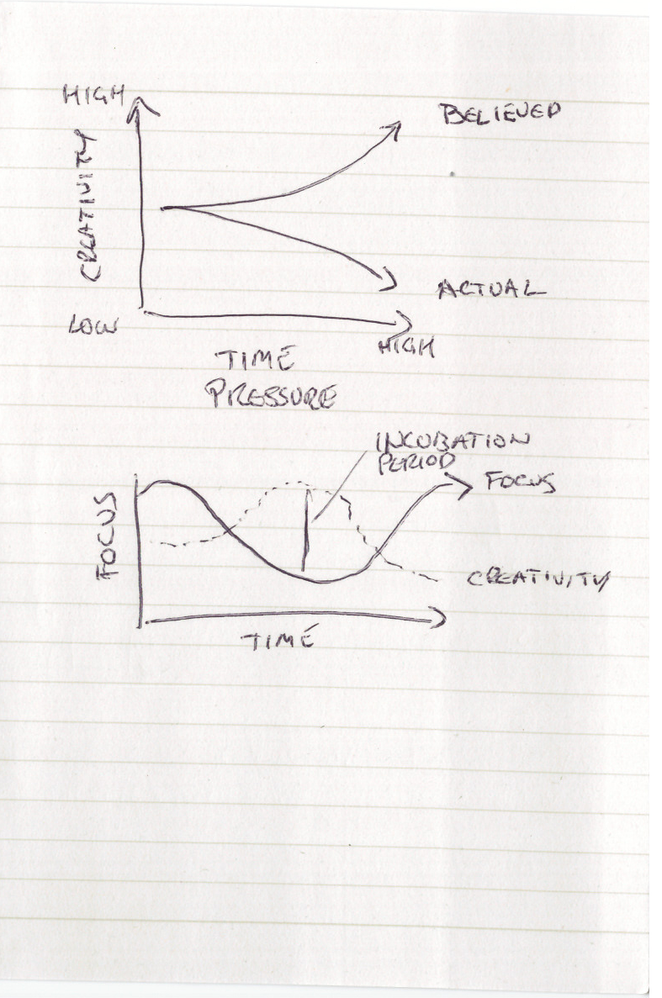 HIGH
BELIEVED
CREATIVITY
ACTUAL
LOW
HIGH
TIME
PRESSURE
INCUBATION
PERIOD
FOCUS
FOCUS
CREATIVITY
TIME